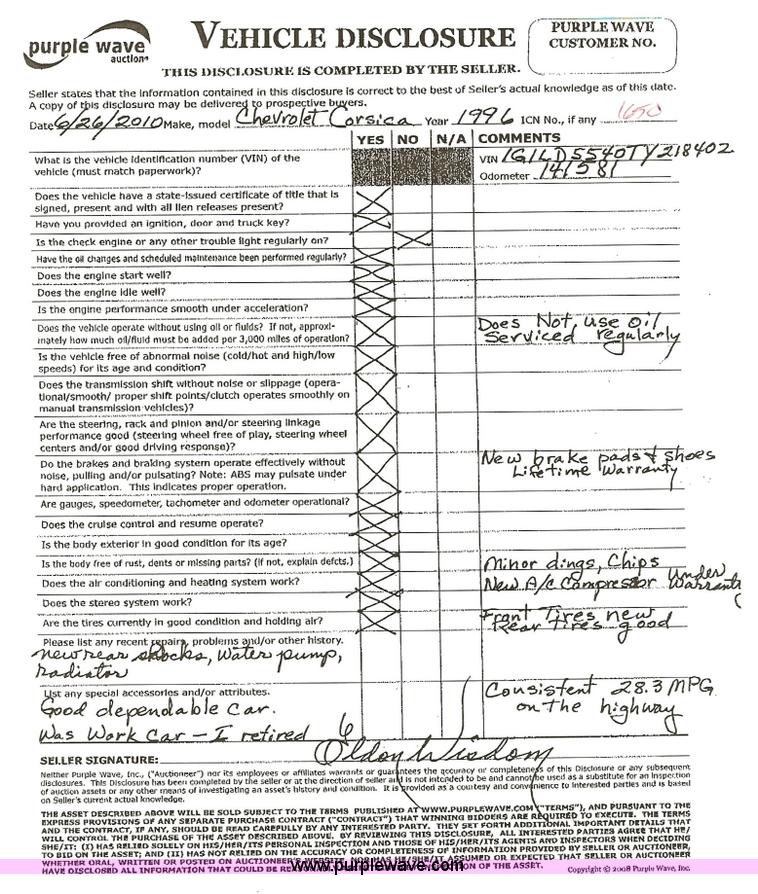 purple wave
auction®
VEHICLE DISCLOSURE
THIS DISCLOSURE IS COMPLETED BY THE SELLER.
PURPLE WAVE
CUSTOMER NO.
Seller states that the information contained in this disclosure is correct to the best of Seller's actual knowledge as of this date.
A copy of this disclosure may be delivered to prospective buyers.
Date 6/26/2010 Make, model Chevrolet Corsica Year 1996 ICN No., if any 1650
YES NO N/A COMMENTS
What is the vehicle identification number (VIN) of the
vehicle (must match paperwork)?
VIN 1G1LD5540TY218402
Odometer 141581
Does the vehicle have a state-issued certificate of title that is
signed, present and with all lien releases present?
Have you provided an ignition, door and truck key?
Is the check engine or any other trouble light regularly on?
Have the oil changes and scheduled maintenance been performed regularly?
Does the engine start well?
Does the engine idle well?
Is the engine performance smooth under acceleration?
Does the vehicle operate without using oil or fluids? If not, approxi-
mately how much oil/fluid must be added per 3,000 miles of operation?
Does Not, use oil
Serviced regularly
Is the vehicle free of abnormal noise (cold/hot and high/low
speeds) for its age and condition?
Does the transmission shift without noise or slippage (opera-
tional/smooth/ proper shift points/clutch operates smoothly on
manual transmission vehicles)?
Are the steering, rack and pinion and/or steering linkage
performance good (steering wheel free of play, steering wheel
centers and/or good driving response)?
Do the brakes and braking system operate effectively without
noise, pulling and/or pulsating? Note: ABS may pulsate under
hard application. This indicates proper operation.
New brake pads & shoes
Lifetime Warranty
Are gauges, speedometer, tachometer and odometer operational?
Does the cruise control and resume operate?
Is the body exterior in good condition for its age?
Is the body free of rust, dents or missing parts? (if not, explain defcts.)
Minor dings, Chips
Does the air conditioning and heating system work?
New A/c Compressor Under Warranty
Does the stereo system work?
Are the tires currently in good condition and holding air?
Front Tires new
Rear Tires good
Please list any recent repairs, problems and/or other history.
New rear shocks, Water pump,
radiator
List any special accessories and/or attributes.
Good dependable car.
Was Work Car - I retired
Consistent 28.3 MPG
on the highway
SELLER SIGNATURE: Oldon Wisdom
Neither Purple Wave, Inc., ("Auctioneer") nor its employees or affiliates warrants or guarantees the accuracy or completeness of this Disclosure or any subsequent
disclosures. This Disclosure has been completed by the seller or at the direction of seller and is not intended to be and cannot be used as a substitute for an inspection
of auction assets or any other means of investigating an asset's history and condition. It is provided as a courtesy and convenience to interested parties and is based
on Seller's current actual knowledge.
THE ASSET DESCRIBED ABOVE WILL BE SOLD SUBJECT TO THE TERMS PUBLISHED AT WWW.PURPLEWAVE.COM ("TERMS"), AND PURSUANT TO THE
EXPRESS PROVISIONS OF ANY SEPARATE PURCHASE CONTRACT ("CONTRACT") THAT WINNING BIDDERS ARE REQUIRED TO EXECUTE. THE TERMS
AND THE CONTRACT, IF ANY, SHOULD BE READ CAREFULLY BY ANY INTERESTED PARTY. THEY SET FORTH ADDITIONAL IMPORTANT DETAILS THAT
WILL CONTROL THE PURCHASE OF THE ASSET DESCRIBED ABOVE. BY REVIEWING THIS DISCLOSURE, ALL INTERESTED PARTIES AGREE THAT HE/
SHE/IT: (I) HAS RELIED SOLELY ON HIS/HER/ITS PERSONAL INSPECTION AND THOSE OF HIS/HER/ITS AGENTS AND INSPECTORS WHEN DECIDING
TO BID ON THE ASSET; AND (II) HAS NOT RELIED ON THE ACCURACY OR COMPLETENESS OF INFORMATION PROVIDED BY SELLER OR AUCTIONEER,
WHETHER ORAL, WRITTEN OR POSTED ON AUCTIONEER'S WEBSITE, NOR HAS HE/SHE/IT ASSUMED OR EXPECTED THAT SELLER OR AUCTIONEER
HAVE DISCLOSED ALL INFORMATION THAT COULD BE OF THE ASSET.
Copyright © 2008 Purple Wave, Inc.
www.purplewave.com